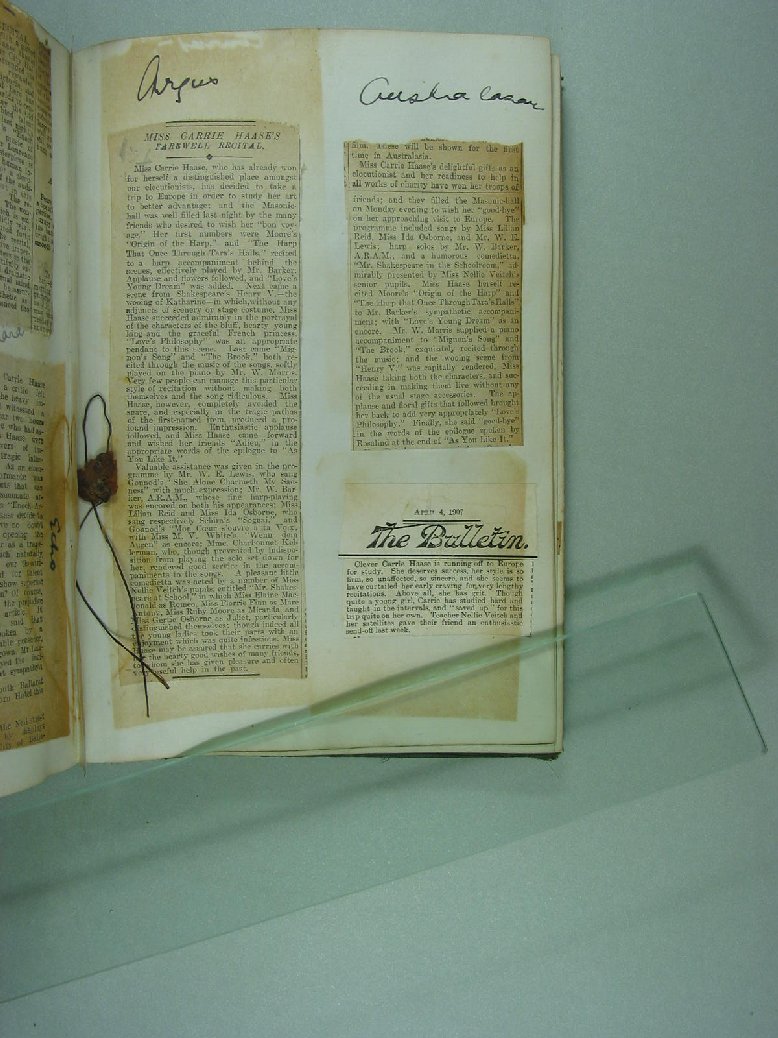 Argus
MISS CARRIE HAASE'S
FAREWELL RECITAL.
Miss Carrie Haase, who has already won
for herself a distinguished place amongst
our elocutionists, has decided to take a
trip to Europe in order to study her art
to better advantage; and the Masonic-
hall was well filled last night by the many
friends who desired to wish her "bon voy-
age." Her first numbers were Moore's
"Origin of the Harp," and "The Harp
That Once Through Tara's Halls," recited
to a harp accompaniment behind the
scenes, effectively played by Mr. Barker.
Applause and flowers followed, and "Love's
Young Dream" was added. Next came a
scene from Shakespeare's Henry V.—the
wooing of Katharine—in which, without any
adjuncts of scenery or stage costume, Miss
Haase succeeded admirably in the portrayal
of the characters of the bluff, hearty young
king and the graceful French princess.
"Love's Philosophy" was an appropriate
pendant to this scene. Last came "Mig-
non's Song" and "The Brook," both re-
cited through the music of the songs, softly
played on the piano by Mr. W. Morris.
Very few people can manage this particular
style of recitation without making both
themselves and the song ridiculous. Miss
Haase, however, completely avoided the
snare, and especially in the tragic pathos
of the first-named item, produced a pro-
found impression. Enthusiastic applause
followed, and Miss Haase came forward
and wished her friends "Adieu," in the
appropriate words of the epilogue to "As
You Like It."
Valuable assistance was given in the pro-
gramme by Mr. W. E. Lewis, who sang
Gounod's "She Alone Charmeth My Sad-
ness" with much expression; Mr. W. Bar-
ker, A.R.A.M., whose fine harp-playing
was encored on both his appearances; Miss
Lilian Reid and Miss Ida Osborne, who
sang respectively "Sognai," and
Gounod's "Mon Cœur s'ouvre a ta Voix,"
with Miss M. V. White's "Wenn dein
Augen" as encore; Mme. Charbonnet Kel-
lerman, who, though prevented by indispo-
sition from playing the solo set down for
her, rendered good service in the accom-
paniments to the songs. A pleasant little
comedietta was acted by a number of Miss
Nellie Veitch's pupils, entitled "Mr. Shakes-
peare at School," in which Miss Elaine Mac-
donald as Romeo, Miss Florrie Finn as Marc
Antony, Miss Ruby Moore as Miranda, and
Miss Gertie Osborne as Juliet, particularly
distinguished themselves; though indeed all
the young ladies took their parts with an
enjoyment which was quite infectious. Miss
may be assured that she carries with
the hearty good wishes of many friends,
to whom she has given pleasure and often
useful help in the past.
Australasian
will be shown for the first
time in Australasia.
Miss Carrie Haase's delightful gifts as an
elocutionist and her readiness to help in
all works of charity have won her troops of
friends; and they filled the Masonic-hall
on Monday evening to wish her "good-bye"
on her approaching visit to Europe. The
programme included songs by Miss Lilian
Reid, Miss Ida Osborne, and Mr. W. E.
Lewis; harp solos by Mr. W. Barker,
A.R.A.M., and a humorous comedietta,
"Mr. Shakespeare in the Schoolroom," ad-
mirably presented by Miss Nellie Veitch's
senior pupils. Miss Haase herself re-
cited Moore's "Origin of the Harp" and
"The Harp that Once Through Tara's Halls"
to Mr. Barker's sympathetic accompani-
ment; with "Love's Young Dream" as an
encore. Mr. W. Morris supplied a piano
accompaniment to "Mignon's Song" and
"The Brook," exquisitely recited through
the music; and the wooing scene from
"Henry V." was capitally rendered, Miss
Haase taking both the characters, and suc-
ceeding in making them live without any
of the usual stage accessories. The ap-
plause and floral gifts that followed brought
her back to add very appropriately "Love's
Philosophy." Finally, she said "good-bye"
in the words of the epilogue spoken by
Rosalind at the end of "As You Like It."
APRIL 4, 1907
The Bulletin.
Clever Carrie Haase is running off to Europe
for study. She deserves success, her style is so
firm, so unaffected, so sincere, and she seems to
have curtailed her early craving for very lengthy
recitations. Above all, she has grit. Though
quite a young girl, Carrie has studied hard and
taught in the intervals, and "saved up" for this
trip quite on her own. Teacher Nellie Veitch and
her satellites gave their friend an enthusiastic
send-off last week.